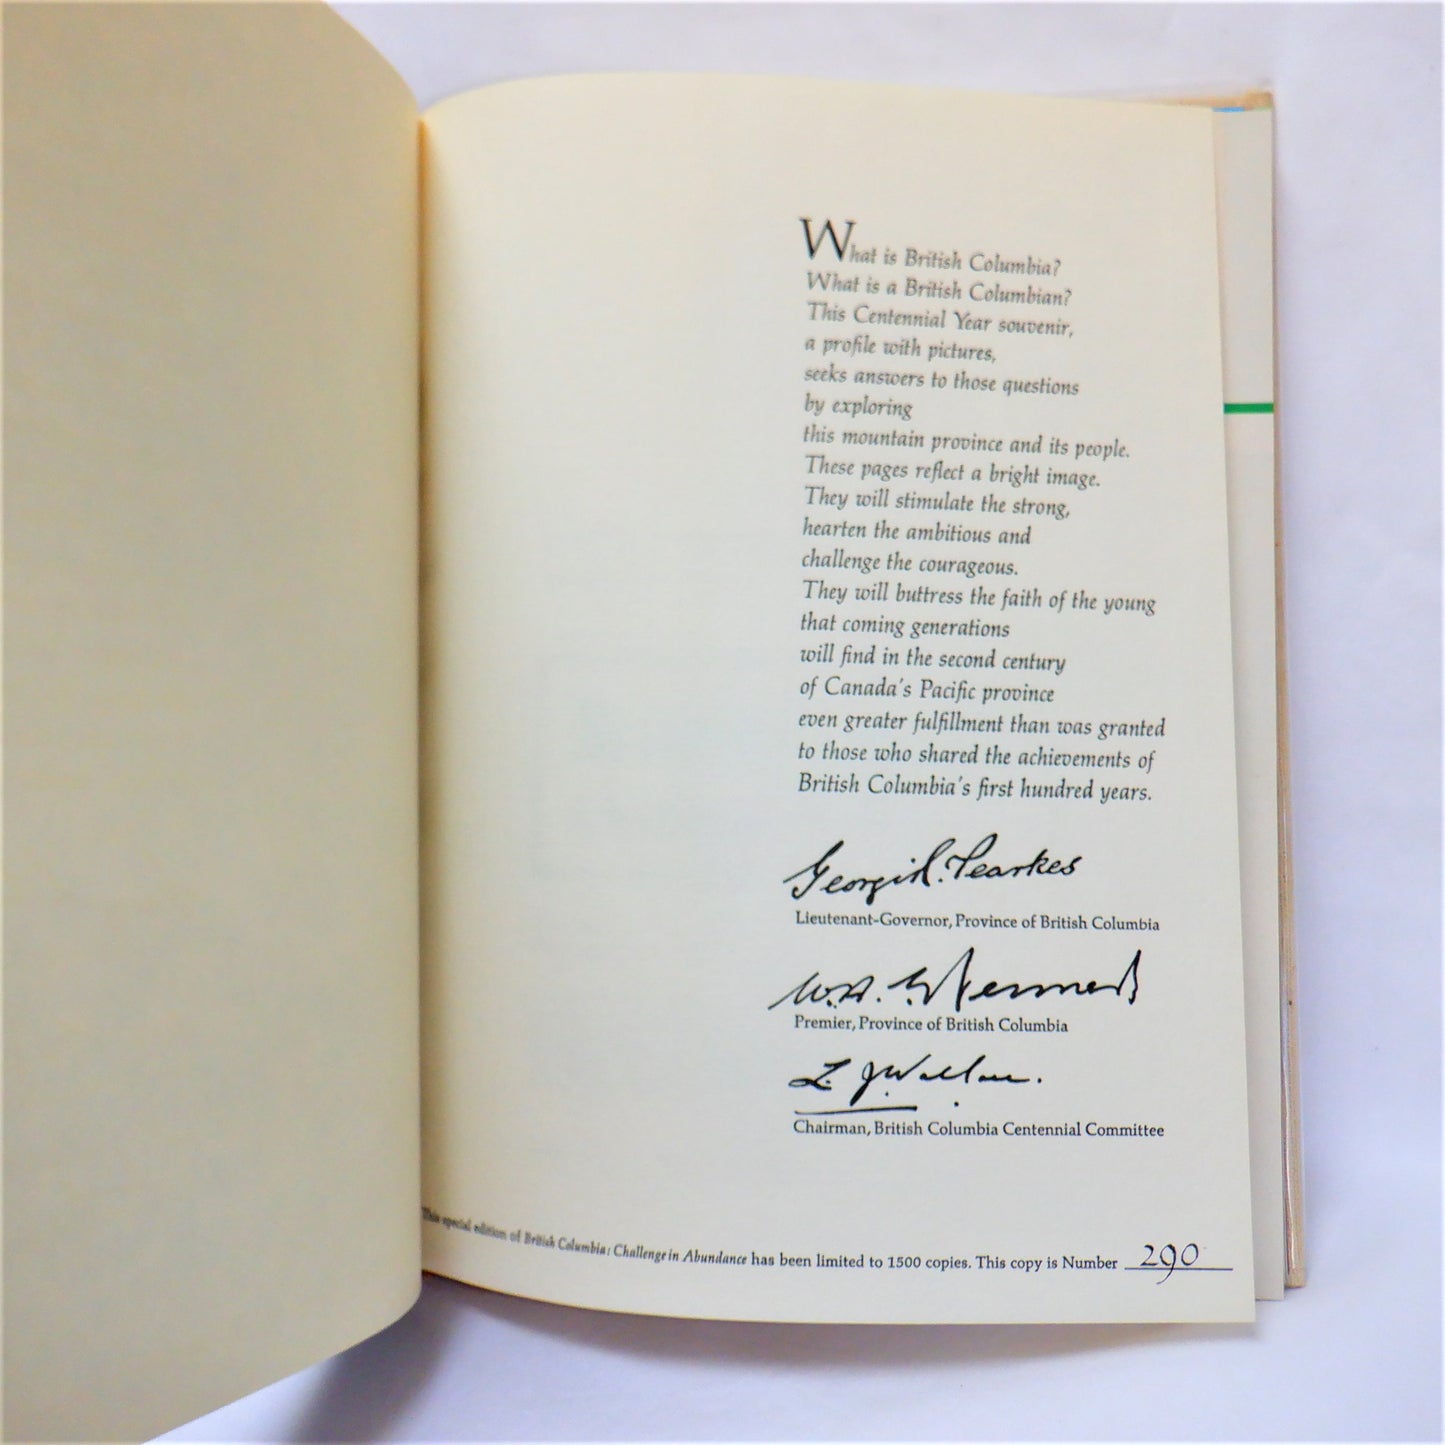 What is British Columbia?
What is a British Columbian?
This Centennial Year souvenir,
a profile with pictures,
seeks answers to those questions
by exploring
this mountain province and its people.
These pages reflect a bright image.
They will stimulate the strong,
hearten the ambitious and
challenge the courageous.
They will buttress the faith of the young
that coming generations
will find in the second century
of Canada's Pacific province
even greater fulfillment than was granted
to those who shared the achievements of
British Columbia's first hundred years.
George R. Pearkes
Lieutenant-Governor, Province of British Columbia
W.A.C. Bennett
Premier, Province of British Columbia
L. J. Wallace.
Chairman, British Columbia Centennial Committee
This special edition of British Columbia: Challenge in Abundance has been limited to 1500 copies. This copy is Number 290